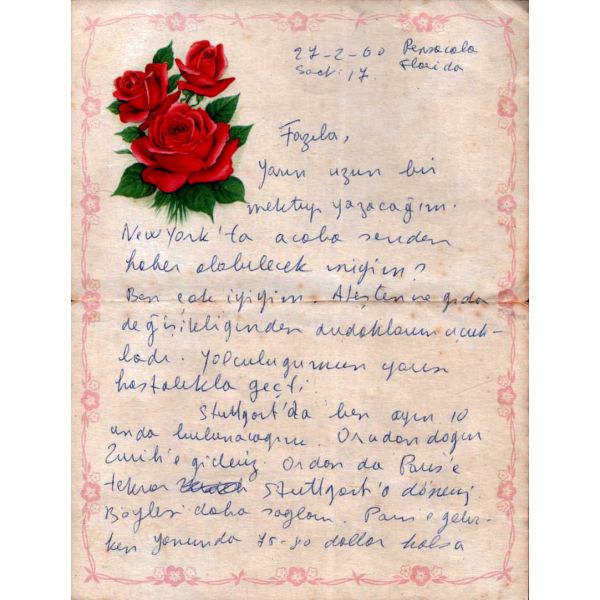 27-2-60 Pensacola
Saat: 17. Florida
Fazıla,
Yarın uzun bir
mektup yazacağım.
New York'ta acaba senden
haber alabilecek miyim?
Ben çok iyiyim. Ateşten ve gıda
değişikliğinden dudaklarım uçuk-
ladı. Yolculuğumun yarısı
hastalıkla geçti.
Stuttgart'da ben ayın 10
unda bulunacağım. Oradan doğru
Zürih'e gideriz. Ordan da Paris'e
tekrar Stuttgart'a döneriz.
Böylesi daha sağlam. Paris'e gelir-
ken yanında 75-80 dollar kalsa